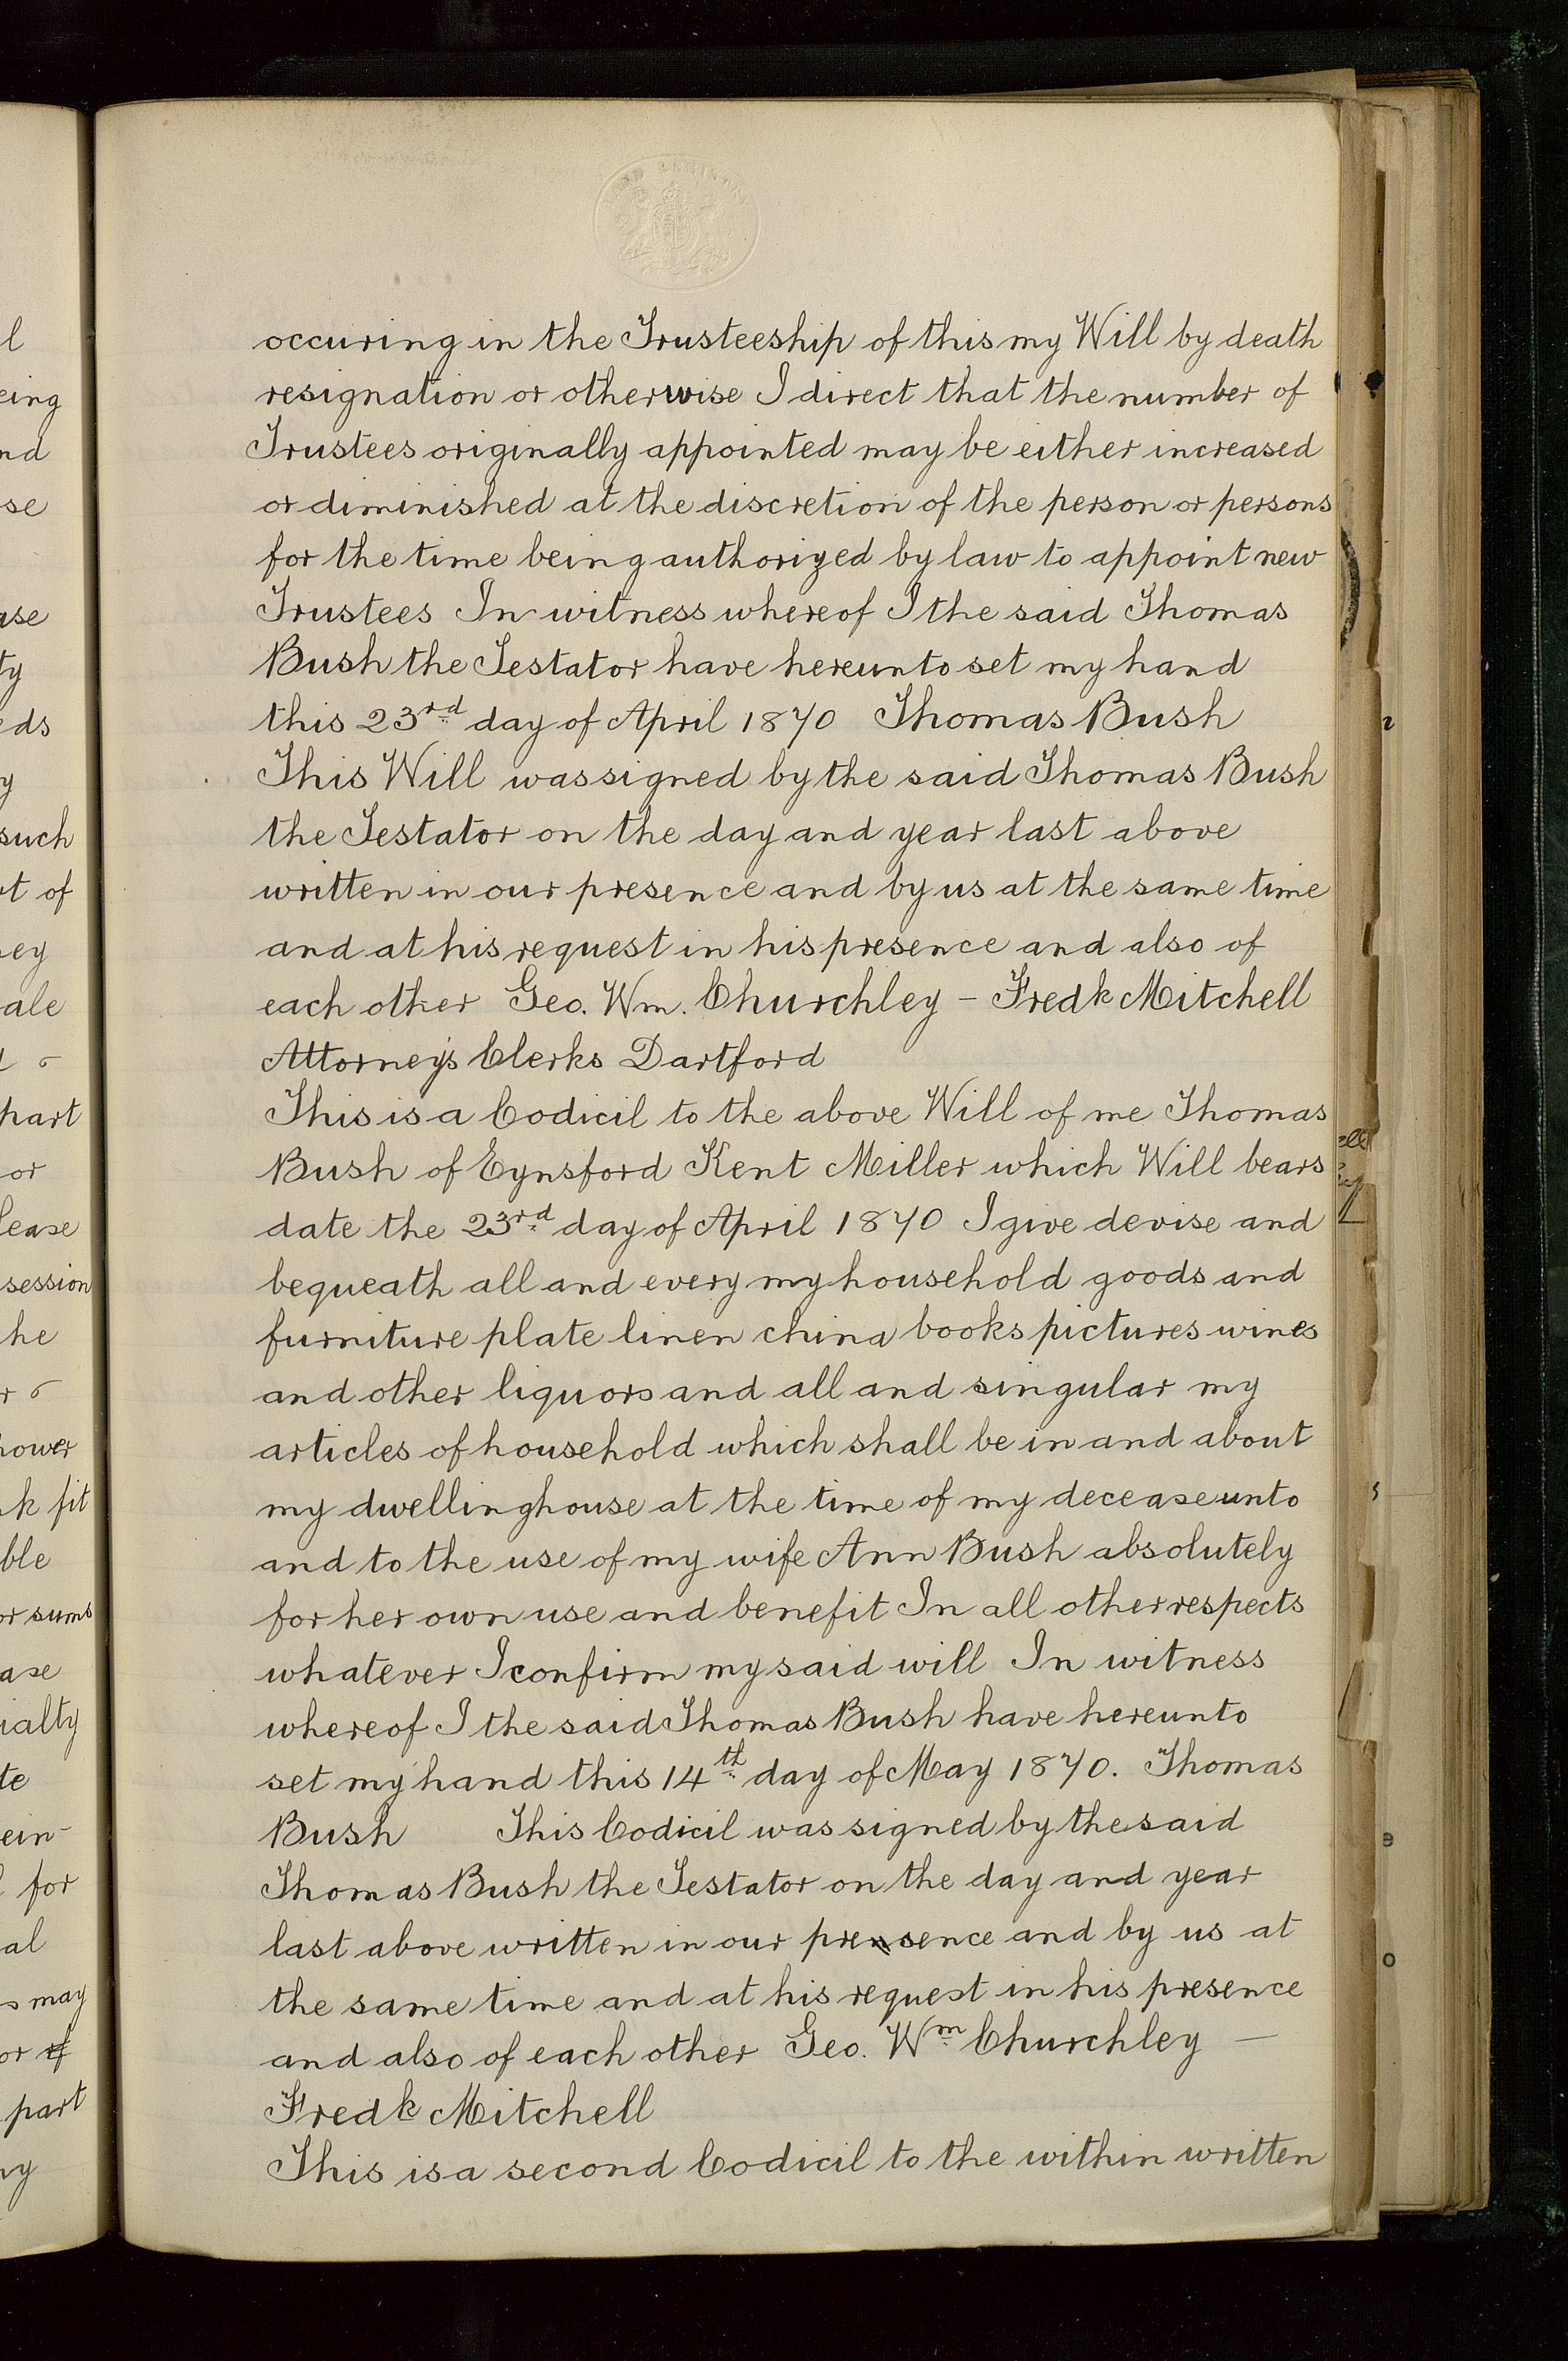 occuring in the Trusteeship of this my Will by death
resignation or otherwise I direct that the number of
Trustees originally appointed may be either increased
or diminished at the discretion of the person or persons
for the time being authorized by law to appoint new
Trustees In witness whereof I the said Thomas
Bush the Testator have hereunto set my hand
this 23rd day of April 1870 Thomas Bush
This Will was signed by the said Thomas Bush
the Testator on the day and year last above
written in our presence and by us at the same time
and at his request in his presence and also of
each other Geo. Wm. Churchley – Fredk Mitchell
Attorneys Clerks Dartford
This is a Codicil to the above Will of me Thomas
Bush of Eynsford Kent Miller which Will bears
date the 23rd day of April 1870 I give devise and
bequeath all and every my household goods and
furniture plate linen china books pictures wines
and other liquors and all and singular my
articles of household which shall be in and about
my dwellinghouse at the time of my decease unto
and to the use of my wife Ann Bush absolutely
for her own use and benefit In all other respects
whatever I confirm my said will In witness
whereof I the said Thomas Bush have hereunto
set my hand this 14th day of May 1870. Thomas
Bush This Codicil was signed by the said
Thomas Bush the Testator on the day and year
last above written in our presence and by us at
the same time and at his request in his presence
and also of each other Geo. Wm Churchley –
Fredk Mitchell
This is a second Codicil to the within written